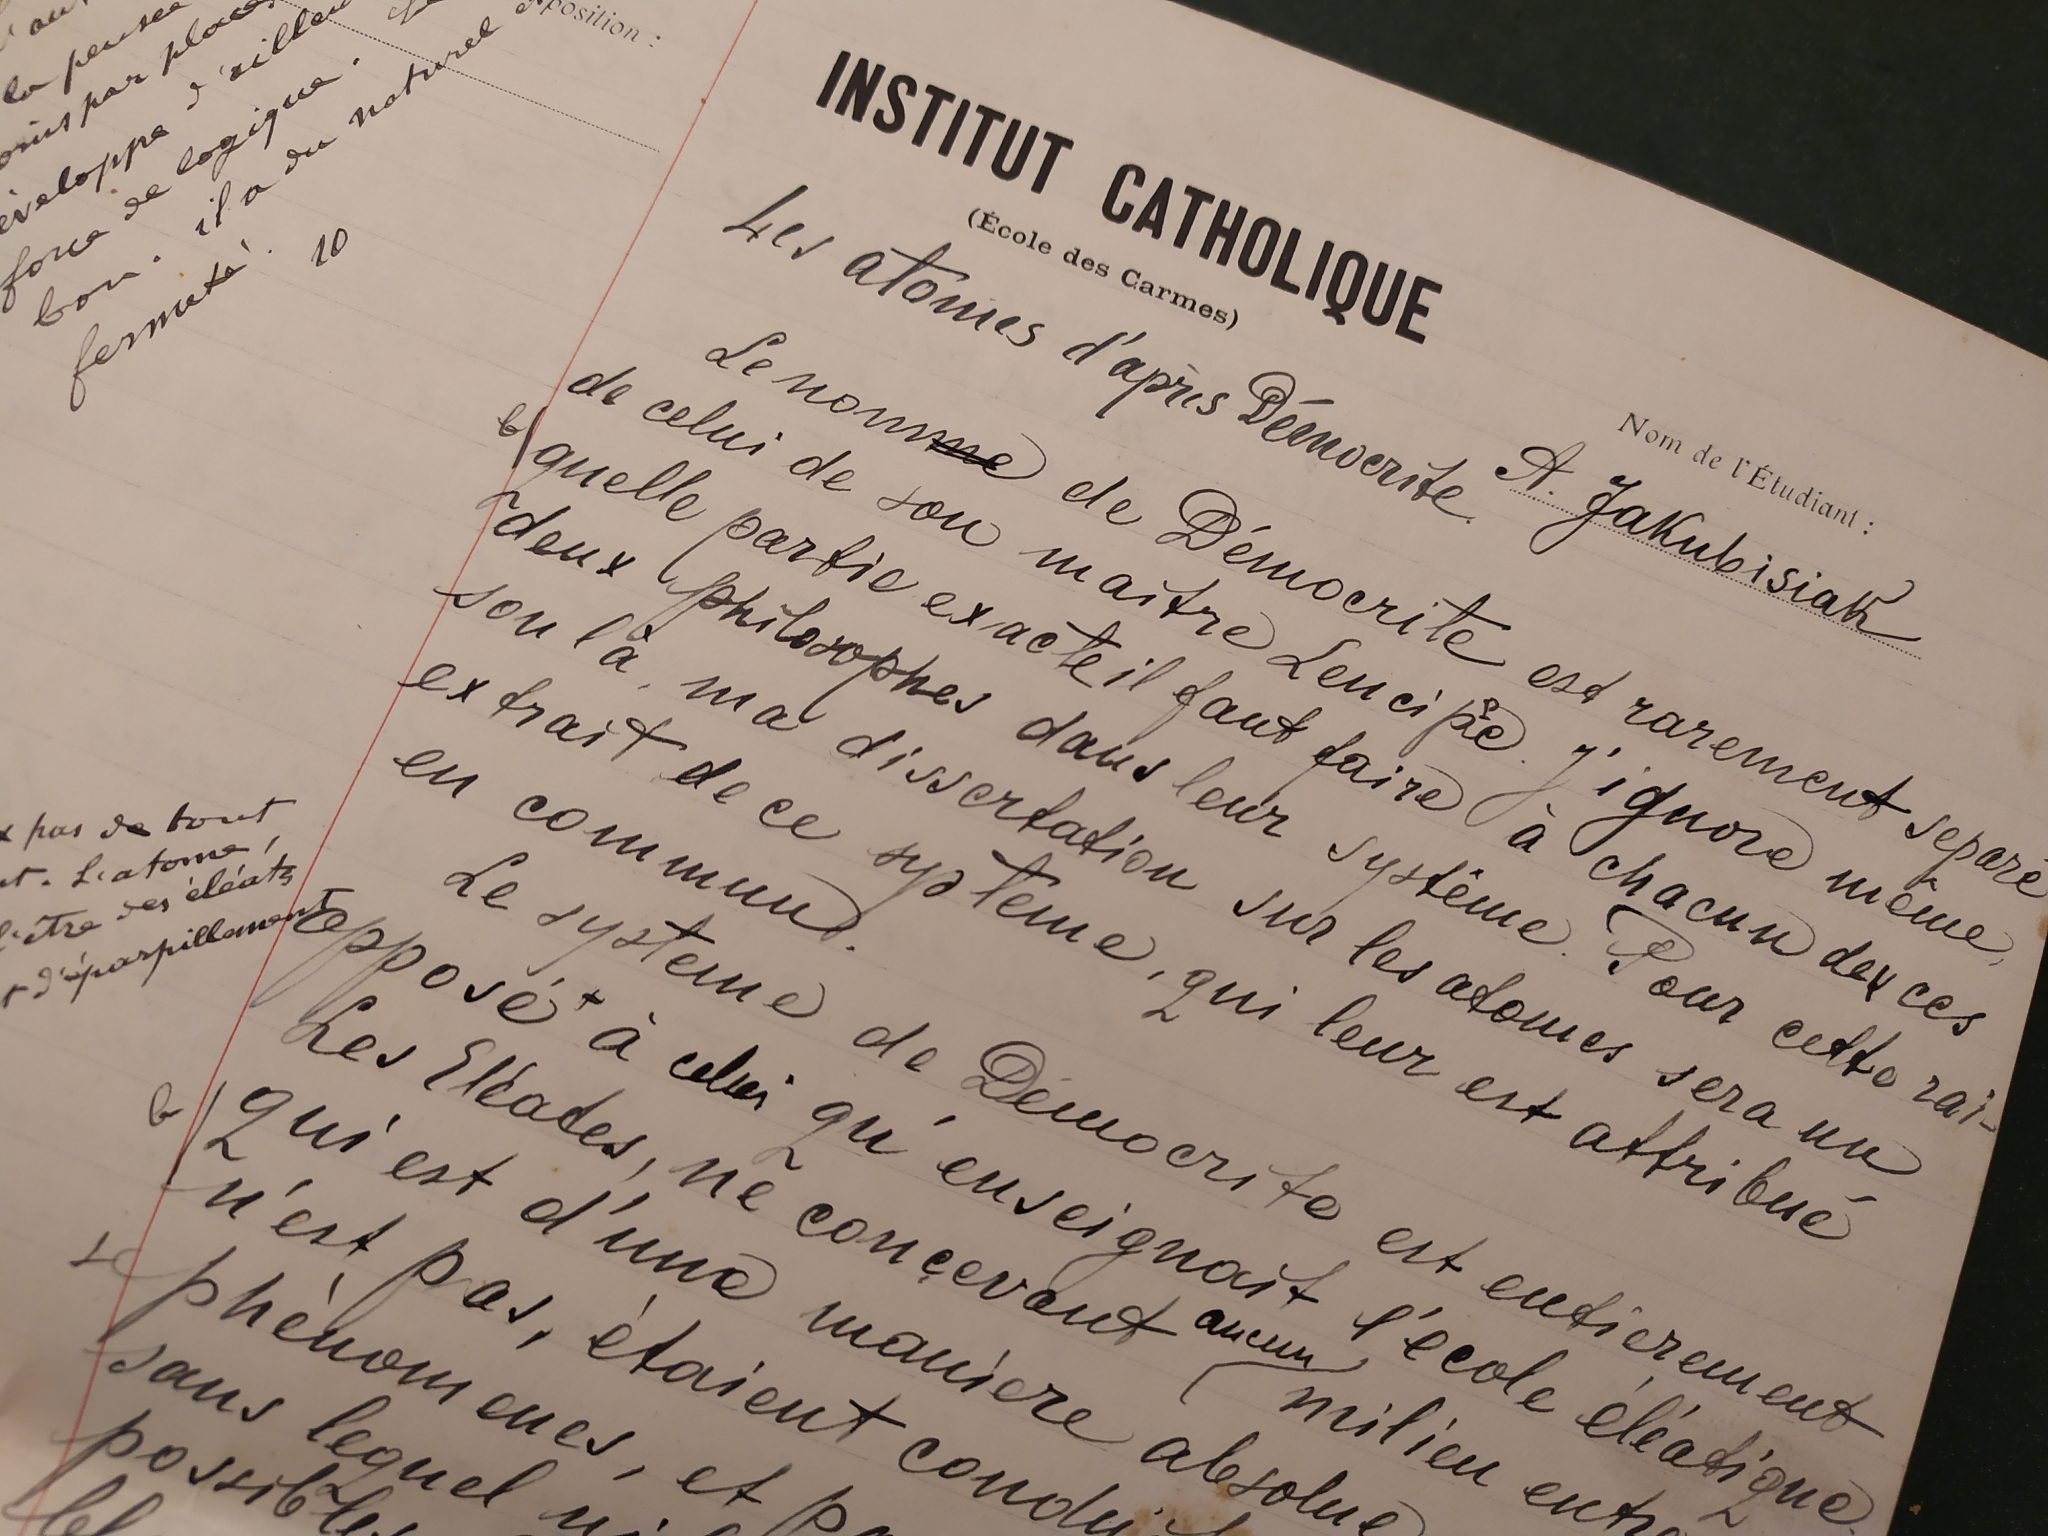 INSTITUT CATHOLIQUE
(École des Carmes)
position :
Nom de l'Étudiant :
A. Jakubisiak
Les atomes d'après Démocrite.
Le nomme de Démocrite est rarement separé
de celui de son maître Leucipe. J'ignore même,
b quelle partie exacte il faut faire à chacun de ces
deux philosophes dans leur système. Pour cette rai-
son là, ma dissertation sur les atomes sera un
extrait de ce système, qui leur est attribué
en commun.
Le systeme de Démocrite est entierement
opposé + à celui qu'enseignait l'école éléatique
Les Eléates, ne conçevant aucun milieu entre
b qui est d'une maniere absolue
n'est pas, étaient
phénomenes, et
sans lequel
possible
la pensée
par places
développe d'ailleu
force de logique.
bon. il a du naturel
fermeté. 10
pas de tout
L'atome,
l'être des éléates
d'éparpillement